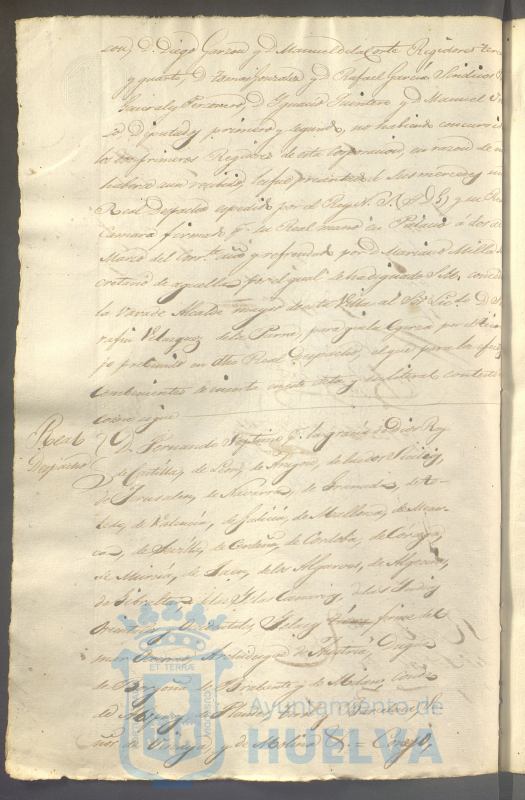 con, D. Diego Garzon y D. Manuel de la Corte Regidores
y quarto, D. Tomas Gonzalez y D. Rafael Garcia Sindicos
y Personero, D. Ygnacio Quintero y D. Manuel
Diputados primero y segundo, no habiendo
los dos primeros Regidores de esta Corporacion, en razon de
haberse aun recibido, le fue presentado á sus mercedes un
Real Despacho expedido por el Rey N. S. (Q. D. G.) y su Real
Camara firmado de su Real mano en Palacio á dos de
Marzo del corr.te año y refrendado por D. Mariano Milla
cretario de aquella, por el qual se ha dignado S. M.
la Vara de Alcalde mayor de esta Villa al Sor. Licdo. D.
rafin Velazquez de la Parra, para que la egerza por el
jo prefinido en dho Real Despacho, el que para los
combenientes se incerta en esta acta y su literal contesto
como sigue
Real
Despacho
D. Fernando Septimo p.r la gracia de Dios Rey
de Castilla, de Leon, de Aragon, de las dos Sicilias,
de Jerusalen, de Navarra, de Granada, de To-
ledo, de Valencia, de Galicia, de Mallorca, de Menor-
ca, de Sevilla, de Cerdeña, de Cordoba, de Corcega,
de Murcia, de Jaen, de los Algarves, de Algecira,
de Gibraltar, de las Yslas Canarias, de las Yndias
Orientales y Occidentales, Yslas y tierra firme del
mar Oceano, Archiduque de Austria, Duque
de Borgoña, de Brabante y de Milan, Conde
de Aspurg, de Flandes, Tirol y Barcelona, Se-
ñor de Vizcaya y de Molina &.a = Concejo,
ET TERRÆ
Ayuntamiento de
HUELVA